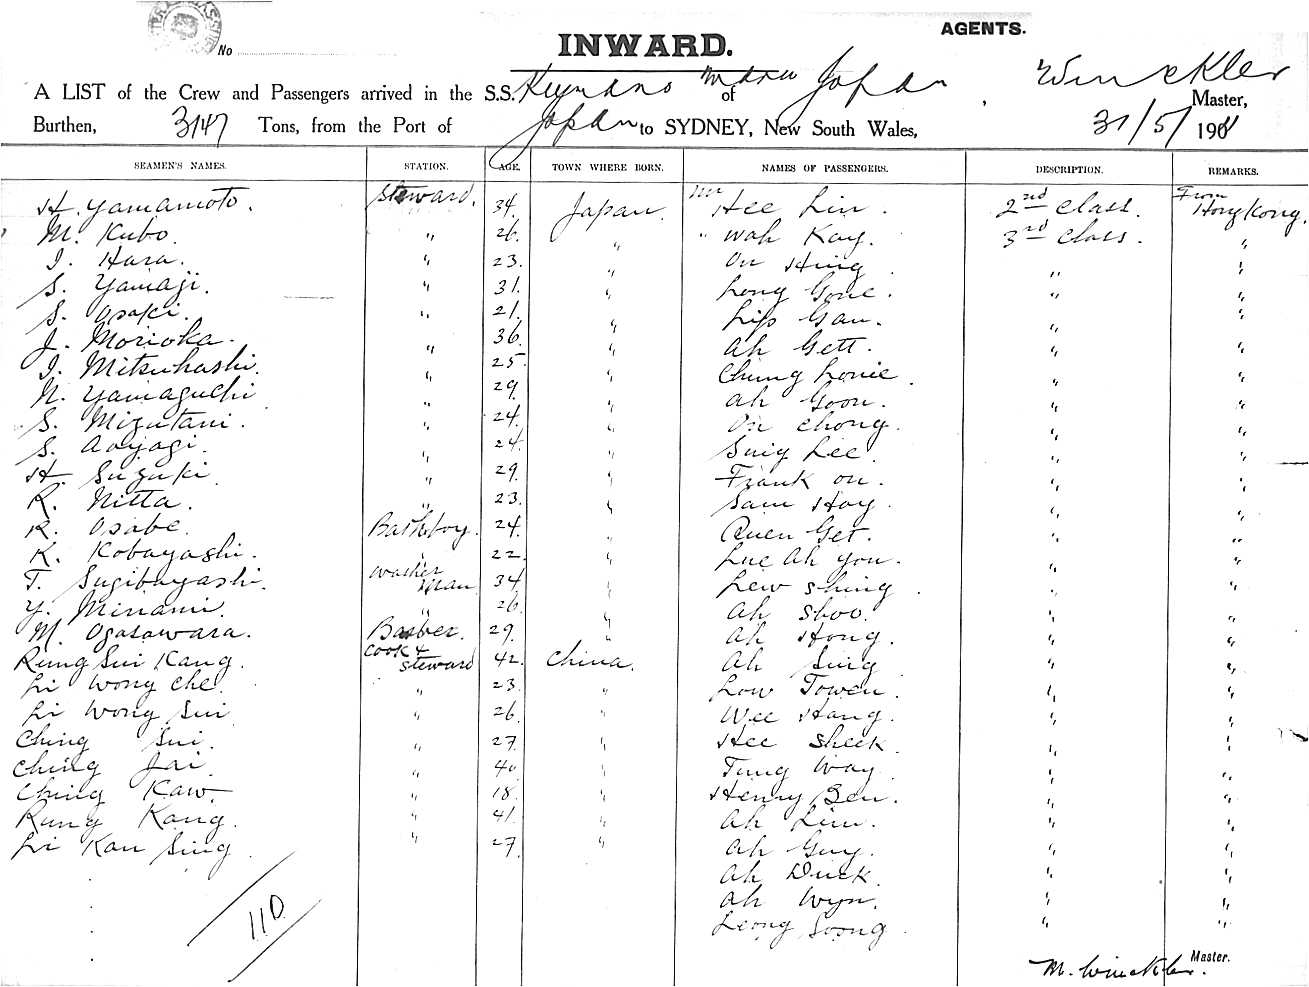 No
INWARD.
AGENTS.
A LIST of the Crew and Passengers arrived in the S.S. Kumano Maru of Japan, Winckler Master,
Burthen, 3147 Tons, from the Port of Japan to SYDNEY, New South Wales, 31/5/1901
SEAMEN'S NAMES. STATION. AGE. TOWN WHERE BORN. NAMES OF PASSENGERS. DESCRIPTION. REMARKS.
H. Yamamoto. Steward. 34. Japan. Mr Hee Lin. 2nd Class. From Hong Kong.
M. Kubo. " 26. " " Wah Kay. 3rd Class. "
I. Hara. " 23. " On Hing " "
S. Yamaji. " 31. " Long Gone. " "
S. Osaki. " 21. " Lip Gau. " "
J. Morioka. " 36. " Ah Gett. " "
I. Mitsuhashi. " 25. " Chung Louie. " "
N. Yamaguchi " 29. " Ah Goon. " "
S. Mizutani. " 24. " On Chong. " "
S. Aoyagi. " 24. " Suig Lee. " "
H. Suzuki. " 29. " Frank On. " "
R. Nitta. " 23. " Sam Hoy. " "
K. Osabe. Bathboy. 24. " Quen Get. " "
K. Kobayashi. " 22. " Lue Ah You. " "
T. Sugibayashi. Washer Man 34. " Lew Shing. " "
Y. Minami. " 26. " Ah Shoo. " "
M. Ogasawara. Barber. 29. " Ah Hong. " "
Rung Sui Kang. Cook & Steward 42. China. Ah Sing " "
Li Wong Che. " 23. " Low Towen. " "
Li Wong Sui " 26. " Wee Hang. " "
Ching Sui. " 27. " Hee Sheek. " "
Ching Jai. " 40 " Tung Way. " "
Ching Kaw. " 18. " Henry Ben. " "
Rung Kang. " 41. " Ah Lim. " "
Li Kan Sing " 27. " Ah Guy. " "
Ah Duck. " "
Ah Wyn. " "
Leong Soong. " "
110
M. Winckler. Master.